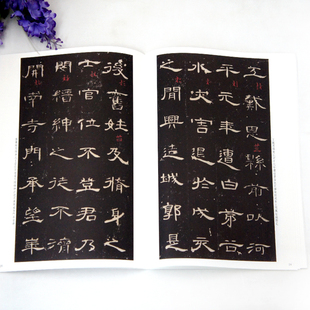 工戴恩縣前以河
平元年遭白茅谷
水灾害退於戌亥
之間興造城郭是
後舊姓及脩身之
士官位不登君乃
閔縉紳之徒不濟
開南寺門承望華